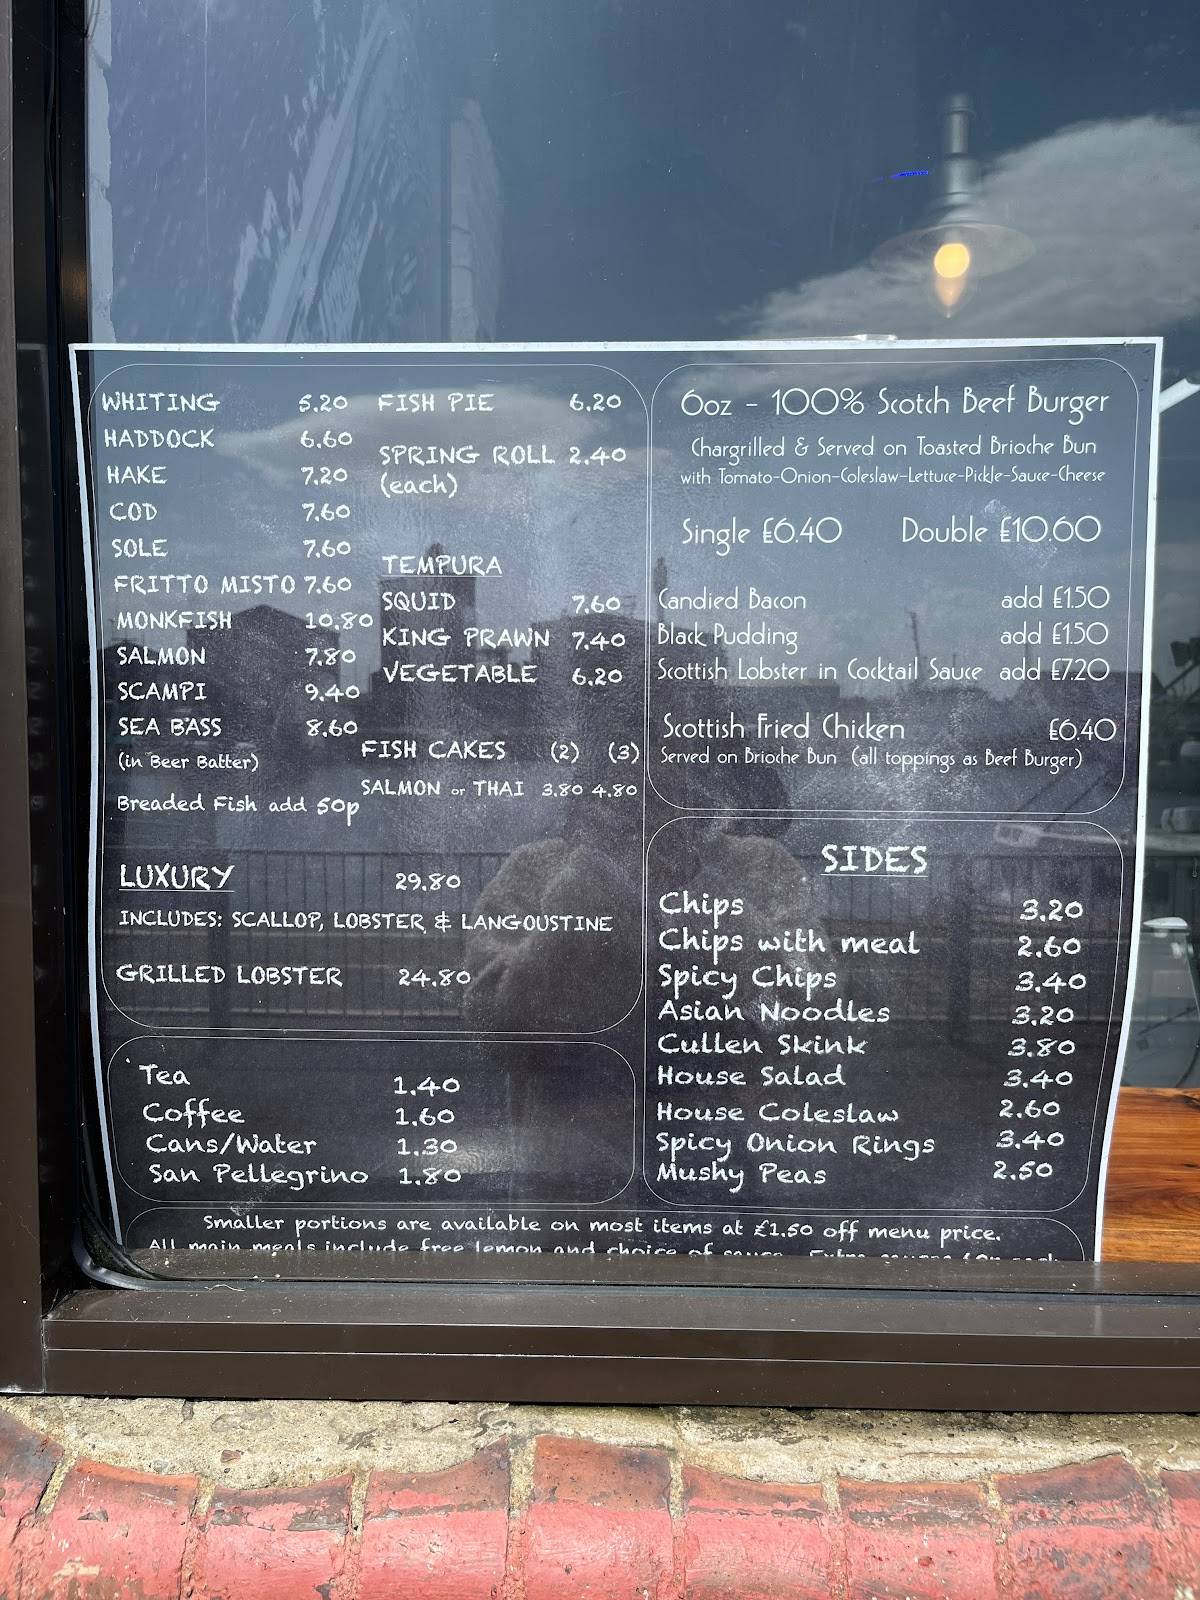 WHITING 5.20
HADDOCK 6.60
HAKE 7.20
COD 7.60
SOLE 7.60
FRITTO MISTO 7.60
MONKFISH 10.80
SALMON 7.80
SCAMPI 9.40
SEA BASS 8.60
(in Beer Batter)
Breaded Fish add 50p
FISH PIE 6.20
SPRING ROLL 2.40
(each)
TEMPURA
SQUID 7.60
KING PRAWN 7.40
VEGETABLE 6.20
FISH CAKES (2) (3)
SALMON or THAI 3.80 4.80
LUXURY 29.80
INCLUDES: SCALLOP, LOBSTER & LANGOUSTINE
GRILLED LOBSTER 24.80
Tea 1.40
Coffee 1.60
Cans/Water 1.30
San Pellegrino 1.80
6oz - 100% Scotch Beef Burger
Chargrilled & Served on Toasted Brioche Bun
with Tomato-Onion-Coleslaw-Lettuce-Pickle-Sauce-Cheese
Single £6.40 Double £10.60
Candied Bacon add £1.50
Black Pudding add £1.50
Scottish Lobster in Cocktail Sauce add £7.20
Scottish Fried Chicken £6.40
Served on Brioche Bun (all toppings as Beef Burger)
SIDES
Chips 3.20
Chips with meal 2.60
Spicy Chips 3.40
Asian Noodles 3.20
Cullen Skink 3.80
House Salad 3.40
House Coleslaw 2.60
Spicy Onion Rings 3.40
Mushy Peas 2.50
Smaller portions are available on most items at £1.50 off menu price.
All main meals include free lemon and choice of sauce